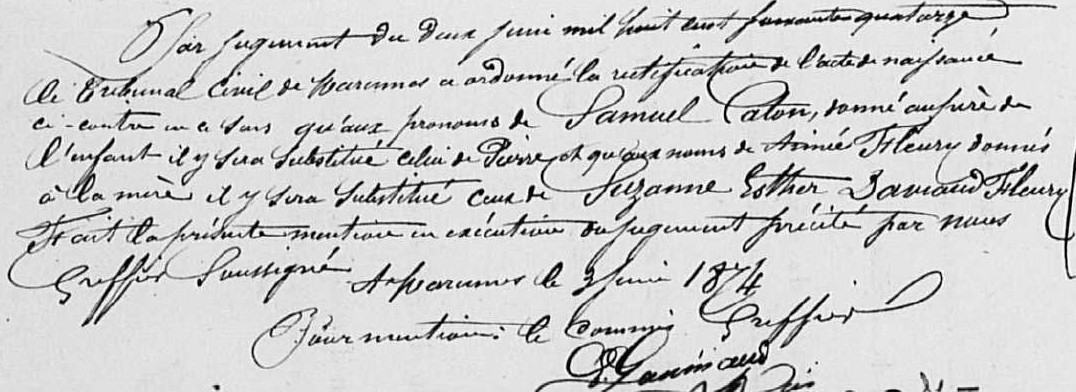 Par jugement du deux juin mil huit cent soixante quatorze
le Tribunal Civil de Marennes a ordonné la rectification de l'acte de naissance
ci-contre en ce sens qu'aux prénoms de Samuel Caton, donné au père de
l'enfant il y sera substitué celui de Pierre, et qu'aux noms de Aimée Fleury donnés
à la mère il y sera substitué ceux de Suzanne Esther Daviaud Fleury
Fait la présente mention en exécution du jugement précité par nous
Greffier soussigné
A Marennes le 3 juin 1874
Pour mention: le commis Greffier